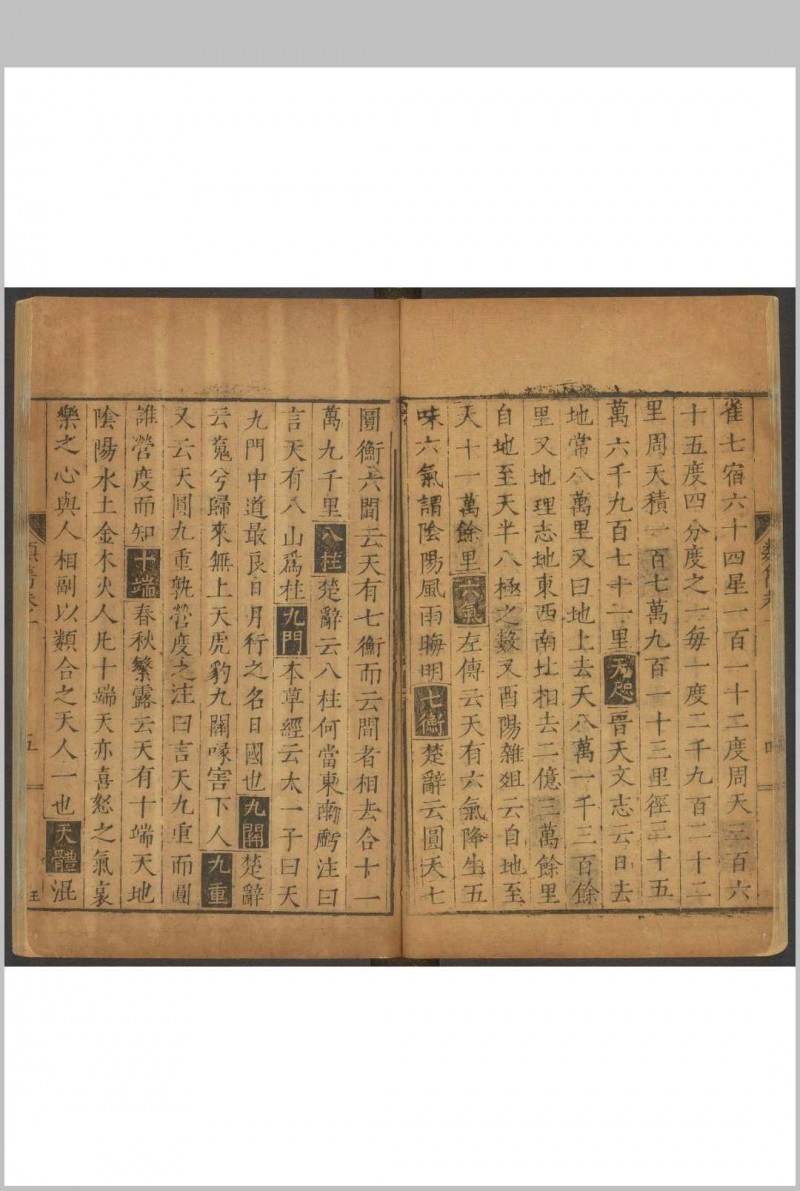 雀七宿六十四星一百一十二度周天三百六
十五度四分度之一每一度二千九百二十二
里周天積一百七萬九百一十三里徑三十五
萬六千九百七十一里天咫晉天文志云日去
地常八萬里又曰地上去天八萬一千三百餘
里又地理志地東西南北相去二億三萬餘里
自地至天半八極之數又酉陽雜俎云自地至
天十一萬餘里六氣左傳云天有六氣降生五
味六氣謂陰陽風雨晦明七衡楚辭云圓天七
圜衡六間云天有七衡而云間者相去合十一
萬九千里八柱楚辭云八柱何當東南虧注曰
言天有八山爲柱九門本草經云太一子曰天
九門中道最良日月行之名日國也九關楚辭
云䰟兮歸來無上天虎豹九關啄害下人九重
又云天圓九重孰營度之注曰言天九重而圓
誰營度而知十端春秋繁露云天有十端天地
陰陽水土金木火人凡十端天亦喜怒之氣哀
樂之心與人相副以類合之天人一也天體混
五
王